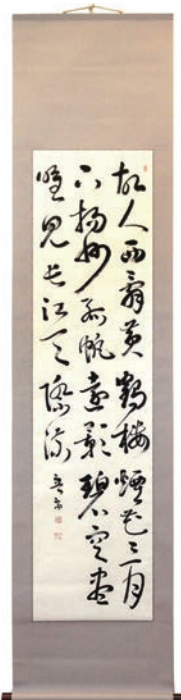 故人西辞黄鶴楼煙花三月
下揚州孤帆遠影碧空尽
唯見長江天際流